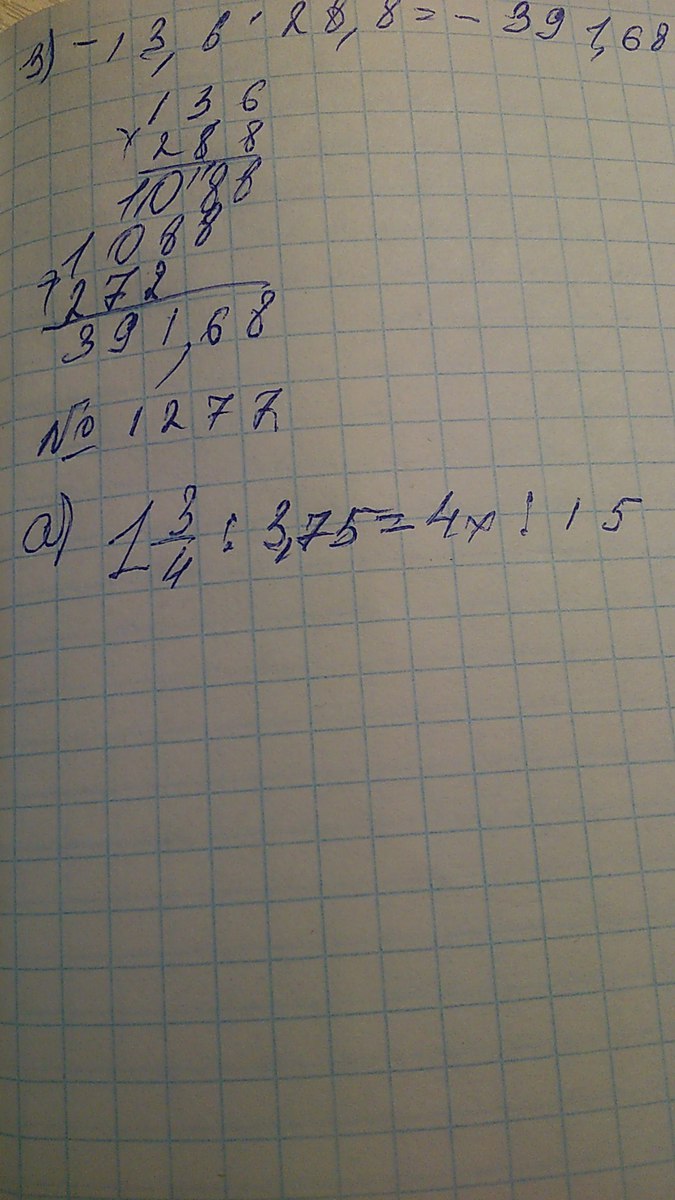 3) -13,6 · 28,8 = -391,68
136
× 288
1088
1088
+ 272
391,68
№ 1277
а) 1 3/4 : 3,75 = 4x : 15